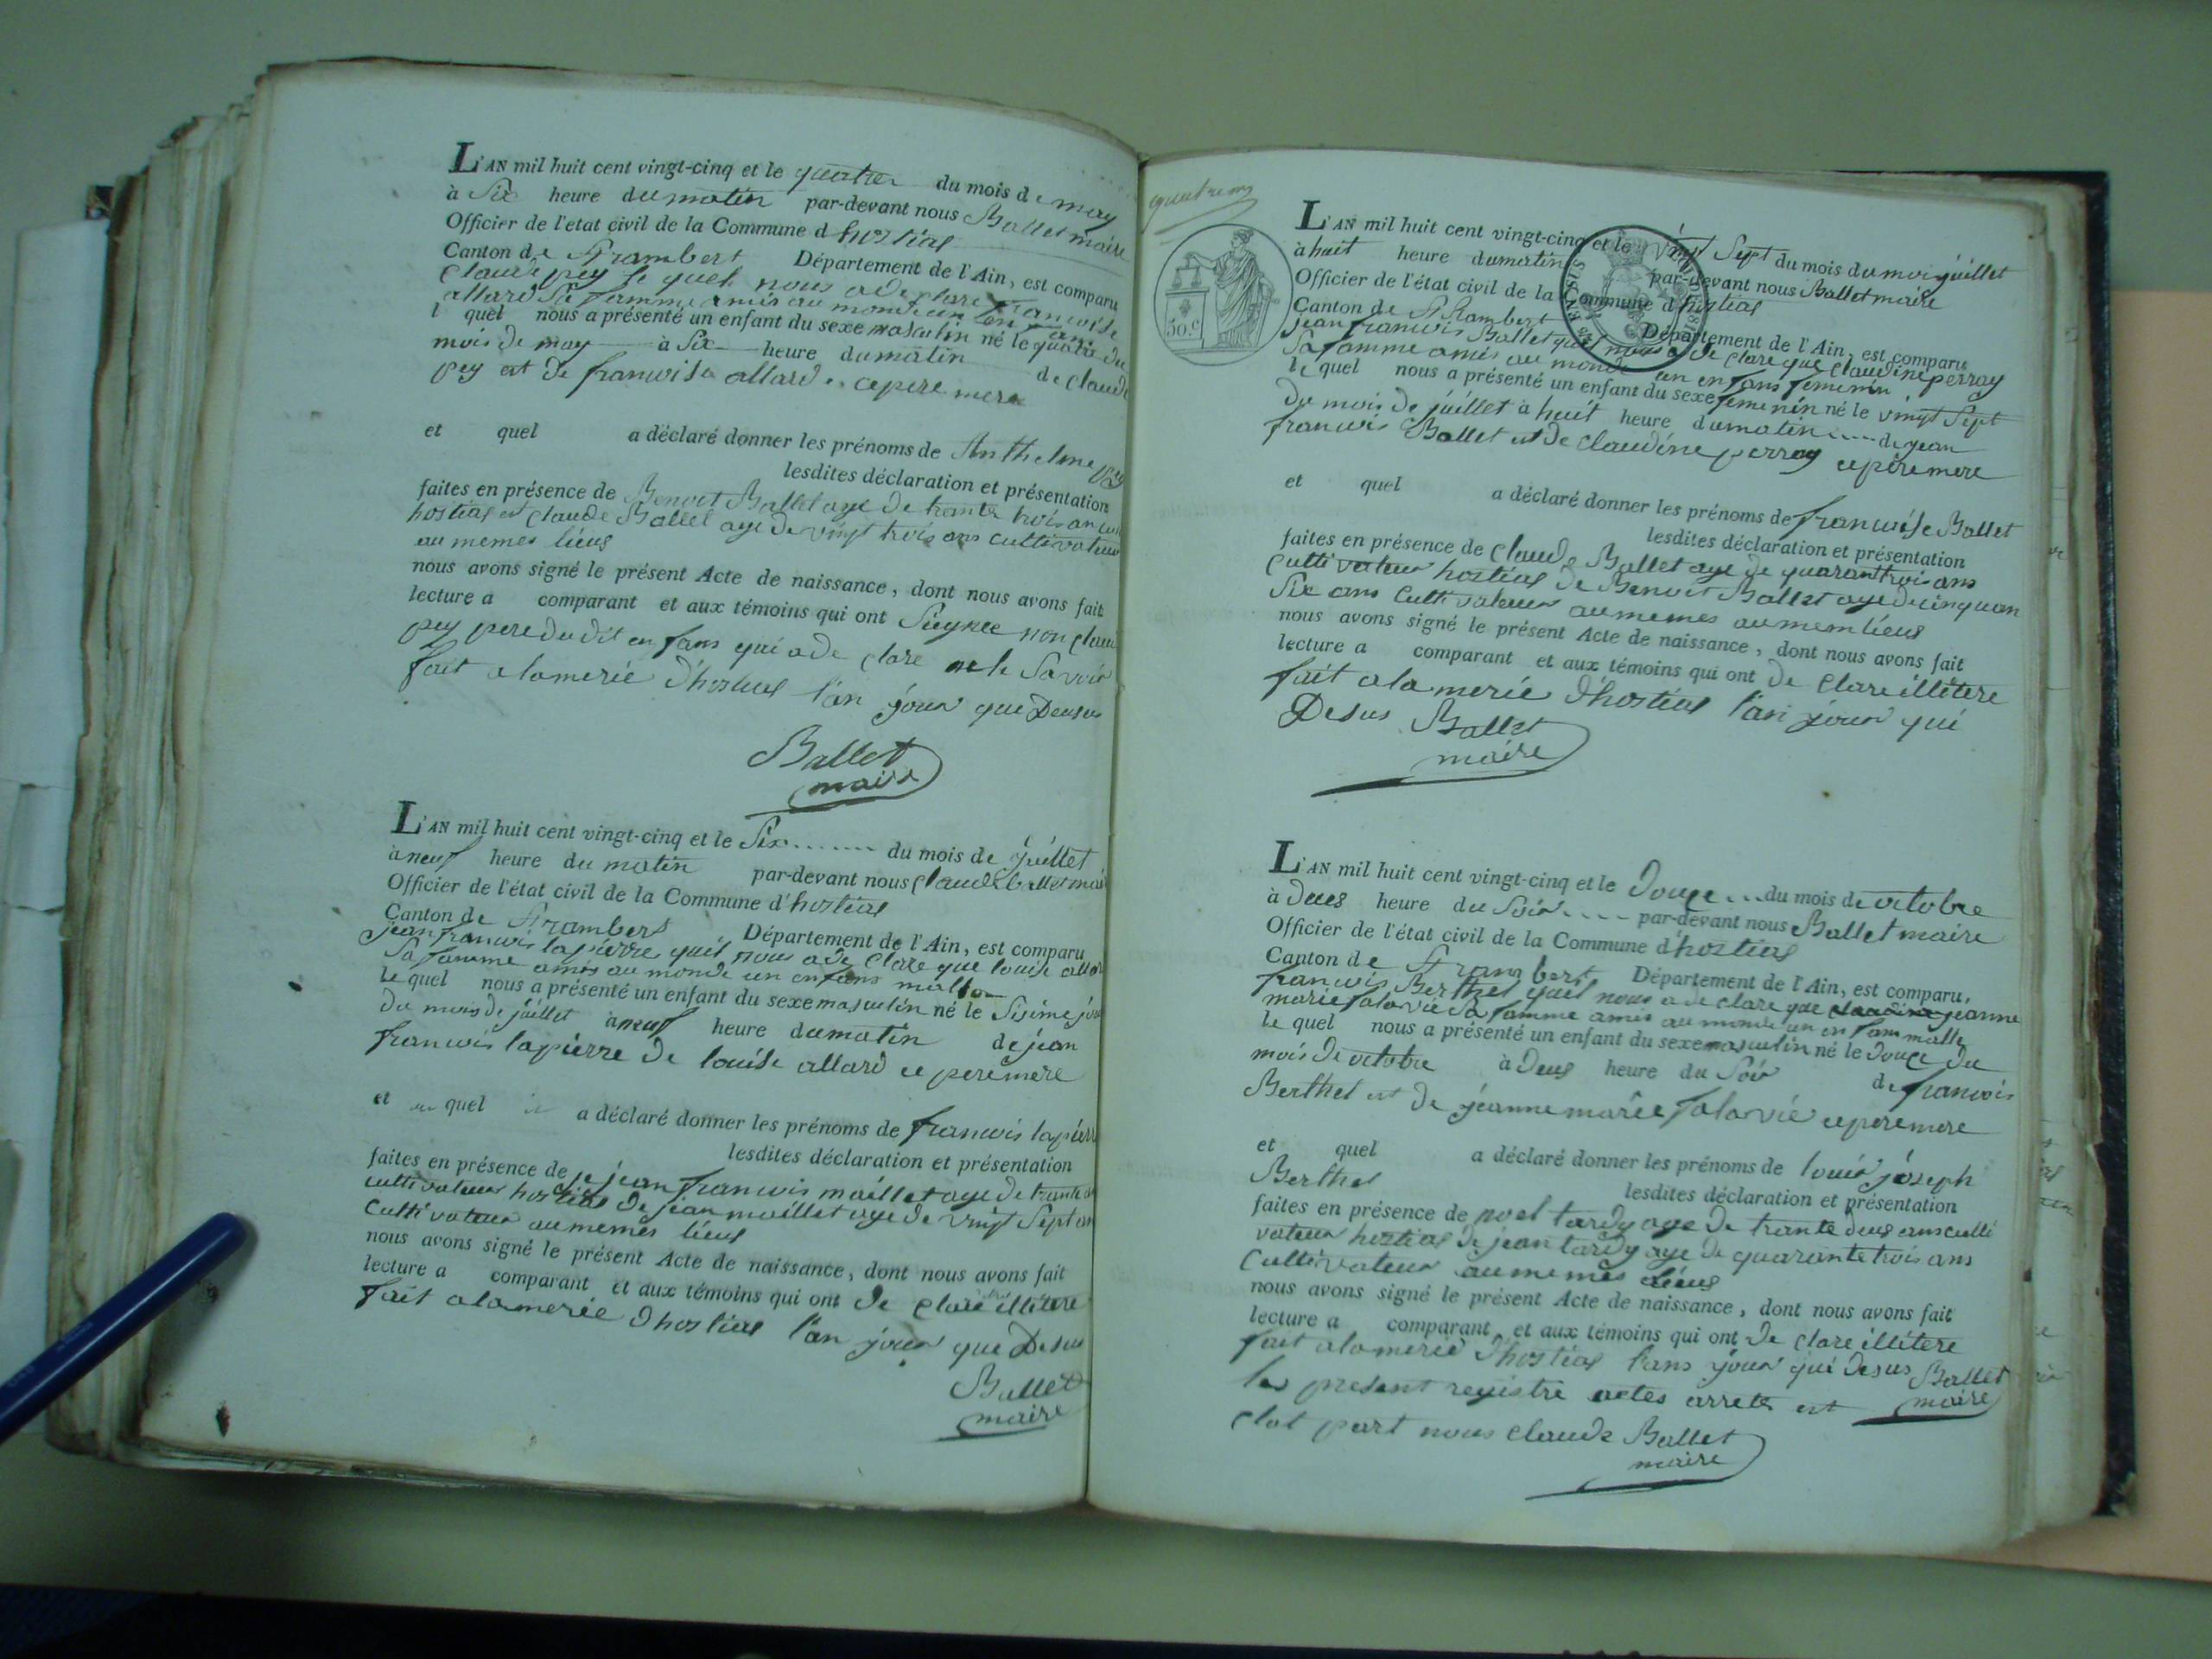 L'AN mil huit cent vingt-cinq et le quatre du mois de may
à Six heure du matin par-devant nous Ballet maire
Officier de l'etat civil de la Commune d hostias
Canton de St rambert Département de l'Ain, est comparu
Claude pey le quel nous a de clare francoise
allard Sa famme amis au monde un enfans
l quel nous a présenté un enfant du sexe masculin né le quatre du
mois de may à Six heure du matin de claude
pey est de francoise allard ce pere mere
et quel a déclaré donner les prénoms de Anthelme pey
lesdites déclaration et présentation
faites en présence de Benoit Ballet age de trante trois an
hostias et claude Ballet age de vingt trois ans cultivateur
au memes lieus
nous avons signé le présent Acte de naissance, dont nous avons fait
lecture a comparant et aux témoins qui ont non claude
pey pere du dit enfans qui a de clare ne le Savoir
fait a la merie d'hostias l'an jour que Desus
Ballet
maire
L'AN mil huit cent vingt-cinq et le Six du mois de juillet
à neuf heure du matin par-devant nous claude ballet maire
Officier de l'état civil de la Commune d' hostias
Canton de St rambert Département de l'Ain, est comparu
jean francois lapierre quil nous a de clare que louise allard
Sa famme amis au monde un enfans
le quel nous a présenté un enfant du sexe masculin né le Sisime jour
du mois de juillet à neuf heure du matin de jean
francois lapierre de louise allard ce pere mere
et quel a déclaré donner les prénoms de francois lapierre
lesdites déclaration et présentation
faites en présence de jean francois maillet age de trante
cultivateur hostias de jean maillet age de vingt Sept an
Cultivateur au memes lieus
nous avons signé le présent Acte de naissance, dont nous avons fait
lecture a comparant et aux témoins qui ont de clare illitere
fait a la merie d hostias l'an jour que Desus
Ballet
maire
50.c
L'AN mil huit cent vingt-cinq et le vingt Sept du mois du mois juillet
à huit heure du matin par-devant nous Ballet maire
Officier de l'état civil de la Commune d hostias
Canton de St Rambert Département de l'Ain, est comparu
jean francois Ballet quil nous a de clare que claudine perray
Sa famme amis au monde un enfans femenin
le quel nous a présenté un enfant du sexe femenin né le vingt Sept
du mois de juillet à huit heure du matin de jean
francois Ballet est de claudine perray ce pere mere
et quel a déclaré donner les prénoms de francoise Ballet
lesdites déclaration et présentation
faites en présence de claude Ballet age de quarant trois ans
Cultivateur hostias de Benoit Ballet age de cinquan
Six ans Cultivateur au memes au mem lieus
nous avons signé le présent Acte de naissance, dont nous avons fait
lecture a comparant et aux témoins qui ont de clare illitere
fait a la merie d'hostias l'an jour qui
Desus Ballet
maire
L'AN mil huit cent vingt-cinq et le Douze du mois de octobre
à Deus heure du Soir par-devant nous Ballet maire
Officier de l'état civil de la Commune d hostias
Canton de St rambert Département de l'Ain, est comparu,
francois Berthet quil nous a de clare que claudine jeanne
marie falavie Sa famme amis au monde un enfans malle
le quel nous a présenté un enfant du sexe masculin né le Douze du
mois de octobre à Deus heure du Soir de francois
Berthet est de jeanne marie falavie ce pere mere
et quel a déclaré donner les prénoms de louis joseph
Berthet
lesdites déclaration et présentation
faites en présence de noel tardy age de trante deus ans culti
vateur hostias de jean tardy age de quarante trois ans
Cultivateur au memes lieus
nous avons signé le présent Acte de naissance, dont nous avons fait
lecture a comparant et aux témoins qui ont de clare illitere
fait a la merie d'hostias l'ans jour qui desus Ballet
maire
les present registre actes arrete est
clot part nous claude Ballet
maire